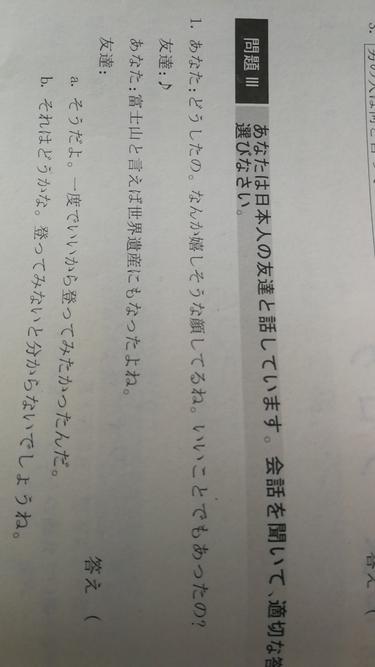 問題 III
あなたは日本人の友達と話しています。会話を聞いて、適切な答
選びなさい。
1. あなた:どうしたの。なんか嬉しそうな顔してるね。いいことでもあったの?
友達:♪
あなた:富士山と言えば世界遺産にもなったよね。
友達:
a. そうだよ。一度でいいから登ってみたかったんだ。
b. それはどうかな。登ってみないと分からないでしょうね。
答え (